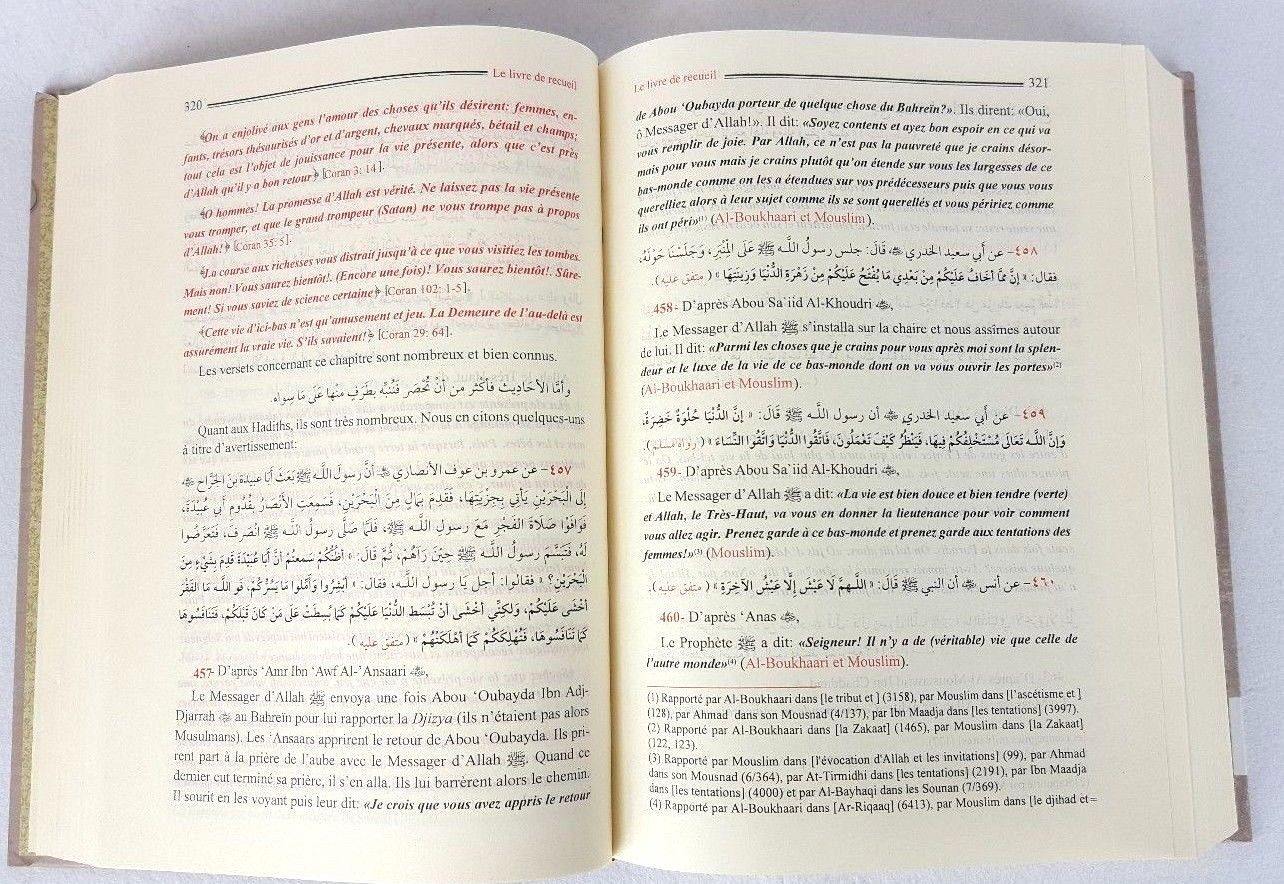 320 Le livre de recueil
﴿On a enjolivé aux gens l'amour des choses qu'ils désirent: femmes, en-
fants, trésors thésaurisés d'or et d'argent, chevaux marqués, bétail et champs;
tout cela est l'objet de jouissance pour la vie présente, alors que c'est près
d'Allah qu'il y a bon retour﴾ [Coran 3: 14].
﴿O hommes! La promesse d'Allah est vérité. Ne laissez pas la vie présente
vous tromper, et que le grand trompeur (Satan) ne vous trompe pas à propos
d'Allah!﴾ [Coran 35: 5].
﴿La course aux richesses vous distrait jusqu'à ce que vous visitiez les tombes.
Mais non! Vous saurez bientôt!. (Encore une fois)! Vous saurez bientôt!. Sûre-
ment! Si vous saviez de science certaine﴾ [Coran 102: 1-5].
﴿Cette vie d'ici-bas n'est qu'amusement et jeu. La Demeure de l'au-delà est
assurément la vraie vie. S'ils savaient!﴾ [Coran 29: 64].
Les versets concernant ce chapitre sont nombreux et bien connus.
وأمَّا الأحَادِيثُ فَأكْثَرُ مِن أنْ تُحْصَر فَنُنَبِّه بِطَرَفٍ مِنْهَا عَلَى مَا سِوَاه.
Quant aux Hadiths, ils sont très nombreux. Nous en citons quelques-uns
à titre d'avertissement:
٤٥٧- عن عمرو بن عوف الأنصاري ﷺ أنَّ رسولَ اللَّـه ﷺ بَعَثَ أبا عبيدةَ بنَ الجرَّاح ﷺ
إلَى الْبَحْرَيْنِ يَأتِي بِجِزْيَتِهَا، فَقَدِمَ بِمَالٍ مِنَ الْبَحْرَيْنِ، فَسَمِعَتِ الأنْصَارُ بِقُدُومِ أبِي عُبَيْدَةَ،
فَوَافَوْا صَلَاةَ الفَجْرِ مَعَ رسولِ اللَّـه ﷺ، فَلَمَّا صَلَّى رسولُ اللَّـه ﷺ انْصَرَفَ، فَتَعَرَّضُوا
لَهُ، فَتَبَسَّمَ رسولُ اللَّـه ﷺ حِيْنَ رَآهُمْ، ثُمَّ قَالَ: « أظُنُّكُمْ سَمِعْتُمْ أنَّ أبَا عُبَيْدَةَ قَدِمَ بِشَيْءٍ مِنَ
الْبَحْرَيْنِ؟ » فقالوا: أجل يَا رسولَ اللَّـه، فقال: « أبْشِرُوا وَأمِّلُوا مَا يَسُرُّكُمْ، فَوَ اللَّـهِ مَا الفَقْرَ
أخْشَى عَلَيْكُمْ، وَلكِنِّي أخْشَى أنْ تُبْسَط الدُّنْيَا عَلَيْكُمْ كَمَا بُسِطَتْ عَلَى مَنْ كَانَ قَبْلَكُمْ، فَتَنَافَسُوهَا
كَمَا تَنَافَسُوهَا، فَتُهْلِكَكُمْ كَمَا أهْلَكَتْهُمْ » ( متفق عليه ).
457- D'après 'Amr Ibn 'Awf Al-'Ansaari ﷺ,
Le Messager d'Allah ﷺ envoya une fois Abou 'Oubayda Ibn Adj-
Djarrah ﷺ au Bahreïn pour lui rapporter la Djizya (ils n'étaient pas alors
Musulmans). Les 'Ansaars apprirent le retour de Abou 'Oubayda. Ils pri-
rent part à la prière de l'aube avec le Messager d'Allah ﷺ. Quand ce
dernier cut terminé sa prière, il s'en alla. Ils lui barrèrent alors le chemin.
Il sourit en les voyant puis leur dit: «Je crois que vous avez appris le retour
Le livre de recueil 321
de Abou 'Oubayda porteur de quelque chose du Bahreïn?». Ils dirent: «Oui,
ô Messager d'Allah!». Il dit: «Soyez contents et ayez bon espoir en ce qui va
vous remplir de joie. Par Allah, ce n'est pas la pauvreté que je crains désor-
mais pour vous mais je crains plutôt qu'on étende sur vous les largesses de ce
bas-monde comme on les a étendues sur vos prédécesseurs puis que vous vous
querelliez alors à leur sujet comme ils se sont querellés et vous péririez comme
ils ont péri»(1) (Al-Boukhaari et Mouslim).
٤٥٨- عن أبي سعيد الخدري ﷺ قَالَ: جلس رسولُ اللَّـه ﷺ عَلَى الْمِنْبَرِ، وَجَلَسْنَا حَوْلَهُ،
فقال: « إنَّ مِمَّا أخَافُ عَلَيْكُمْ مِنْ بَعْدِي مَا يُفْتَحُ عَلَيْكُمْ مِنْ زَهْرَةِ الدُّنْيَا وَزِينَتِهَا » ( متفق عليه ).
458- D'après Abou Sa`iid Al-Khoudri ﷺ,
Le Messager d'Allah ﷺ s'installa sur la chaire et nous assîmes autour
de lui. Il dit: «Parmi les choses que je crains pour vous après moi sont la splen-
deur et le luxe de la vie de ce bas-monde dont on va vous ouvrir les portes»(2)
(Al-Boukhaari et Mouslim).
٤٥٩- عن أبي سعيد الخدري ﷺ أن رسول اللَّـه ﷺ قَالَ: « إنَّ الدُّنْيَا حُلْوَةٌ خَضِرَةٌ،
وَإنَّ اللَّـه تَعَالَى مُسْتَخْلِفُكُمْ فِيهَا، فَيَنْظُرُ كَيْفَ تَعْمَلُونَ، فَاتَّقُوا الدُّنْيَا وَاتَّقُوا النِّسَاءَ » ( رواه مسلم ).
459- D'après Abou Sa`iid Al-Khoudri ﷺ,
Le Messager d'Allah ﷺ a dit: «La vie est bien douce et bien tendre (verte)
et Allah, le Très-Haut, va vous en donner la lieutenance pour voir comment
vous allez agir. Prenez garde à ce bas-monde et prenez garde aux tentations des
femmes!»(3) (Mouslim).
٤٦٠- عن أنس ﷺ أن النبي ﷺ قَالَ: « اللَّهمَّ لَا عَيْشَ إلَّا عَيْشُ الآخِرَةِ » ( متفق عليه ).
460- D'après 'Anas ﷺ,
Le Prophète ﷺ a dit: «Seigneur! Il n'y a de (véritable) vie que celle de
l'autre monde»(4) (Al-Boukhaari et Mouslim).
(1) Rapporté par Al-Boukhaari dans [le tribut et ] (3158), par Mouslim dans [l'ascétisme et ]
(128), par Ahmad dans son Mousnad (4/137), par Ibn Maadja dans [les tentations] (3997).
(2) Rapporté par Al-Boukhaari dans [la Zakaat] (1465), par Mouslim dans [la Zakaat]
(122, 123).
(3) Rapporté par Mouslim dans [l'évocation d'Allah et les invitations] (99), par Ahmad
dans son Mousnad (6/364), par At-Tirmidhi dans [les tentations] (2191), par Ibn Maadja
dans [les tentations] (4000) et par Al-Bayhaqi dans les Sounan (7/369).
(4) Rapporté par Al-Boukhaari dans [Ar-Riqaaq] (6413), par Mouslim dans [le djihad et=